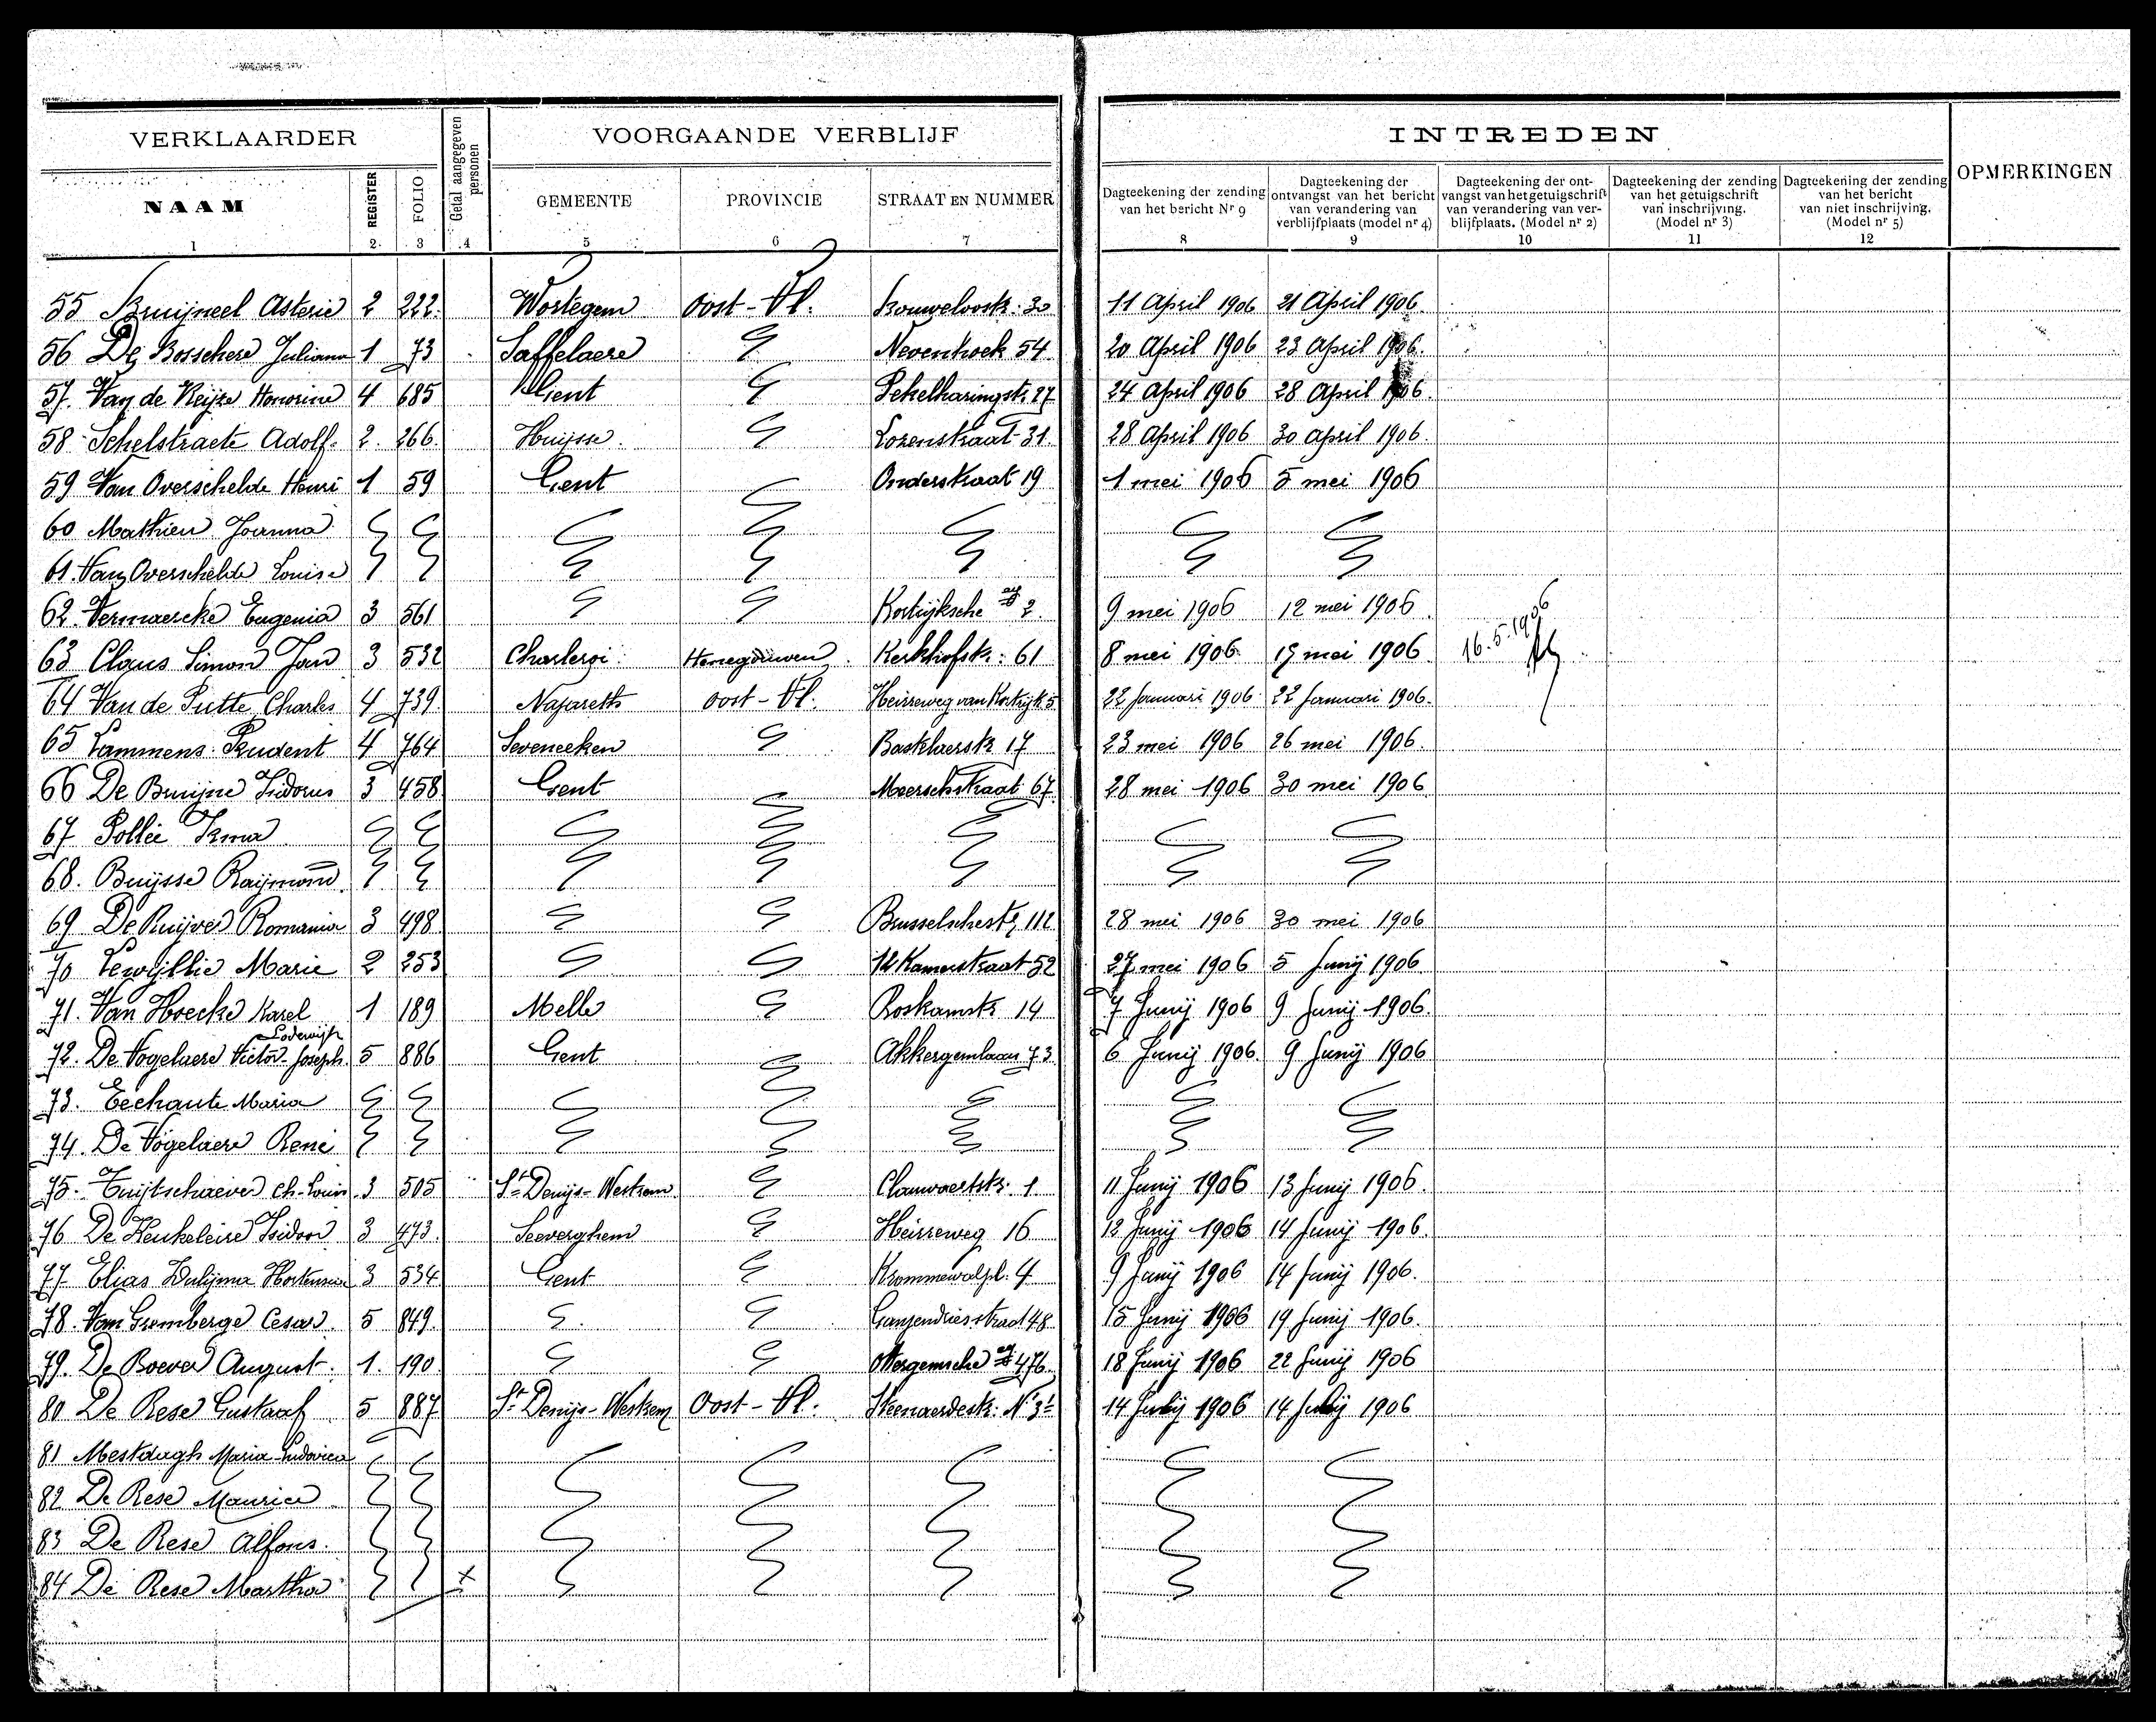 VERKLAARDER
Getal aangegeven personen
VOORGAANDE VERBLIJF
INTREDEN
OPMERKINGEN
NAAM REGISTER FOLIO GEMEENTE PROVINCIE STRAAT EN NUMMER
Dagteekening der zending van het bericht Nr 9
Dagteekening der ontvangst van het bericht van verandering van verblijfplaats (model nr 4)
Dagteekening der ont-vangst van het getuigschrift van verandering van ver-blijfplaats. (Model nr 2)
Dagteekening der zending van het getuigschrift van inschrijving. (Model nr 3)
Dagteekening der zending van het bericht van niet inschrijving. (Model nr 5)
1 2. 3 4 5 6 7 8 9 10 11 12
55 Bruijneel Asterie 2 222. Wortegem Oost-Vl. 30 11 April 1906 21 April 1906
56 De Bosschere Juliana 1 73 Saffelaere Nevenhoek 54 20 April 1906 23 April 1906.
57. Van de Keijze Honorine 4 685 Gent Pekelharingstr 27 24 April 1906 28 April 1906
58 Schelstraete Adolf. 2. 266. Huijsse. Lozenstraat 31 28 April 1906 30 april 1906.
59 Van Overschelde Henri 1 59 Gent Onderstraat 19 1 mei 1906 5 mei 1906
60 Mathieu Joanna
61. Van Overschelde Louise
62. Vermaercke Eugenia 3 561 Kortrijksche 2 9 mei 1906 12 mei 1906
63 Claus Simon Jan 3 532 Charleroi. Henegouwen. Kerkhofstr: 61 8 mei 1906 19 mei 1906 16.5.1906
64 Van de Putte Charles 4 739 Nazareth Oost-Vl. Heirreweg van Kortrijk 5 22 Januari 1906 22 Januari 1906.
65 Lammens Prudent 4 764 Seveneeken Bastelaerstr 17 23 mei 1906 26 mei 1906.
66 De Bruijne Isidorus 3 458 Gent Meerschstraat 67 28 mei 1906 30 mei 1906
67 Pollie Irma
68. Buijsse Raijmond
69 De Ruijver Romania 3 498 Brusselschestr 112 28 mei 1906 30 mei 1906
70 Lewijllie Marie 2 253 12 Kamerstraat 52 27 mei 1906 5 Junij 1906
71. Van Hoecke Karel 1 189 Melle Roskamstr 14 7 Junij 1906 9 Junij 1906.
72. De Vogelaere Victor-Joseph Lodewijk 5 886 Gent Akkergemlaan 73 6 Junij 1906. 9 Junij 1906
73. Eechaute Maria
74. De Vogelaere René
75. Tuijtschaever Ch-Louis 3 505 St Denijs-Westrem Clauwaertstr. 1 11 Junij 1906 13 Junij 1906.
76 De Keukeleire Isidoor 3 473 Seeverghem Heirreweg 16 12 Junij 1906 14 Junij 1906.
77 Elias Hortensia 3 534 Gent Krommewalpl. 4 9 Junij 1906 14 Junij 1906.
78. Van Gremberge Cesar. 5 849 Ganzendriesstraat 48 15 Junij 1906 19 Junij 1906.
79. De Boever August. 1. 190 Ottergemsche 476 18 Junij 1906 22 Junij 1906
80 De Rese Gustaaf 5 887 St Denijs-Westrem Oost-Vl. Steenaerdestr: 14 1906 14 1906
81 Mestdagh Maria-Ludovica
82 De Rese Maurice
83 De Rese Alfons.
84 De Rese Martha X